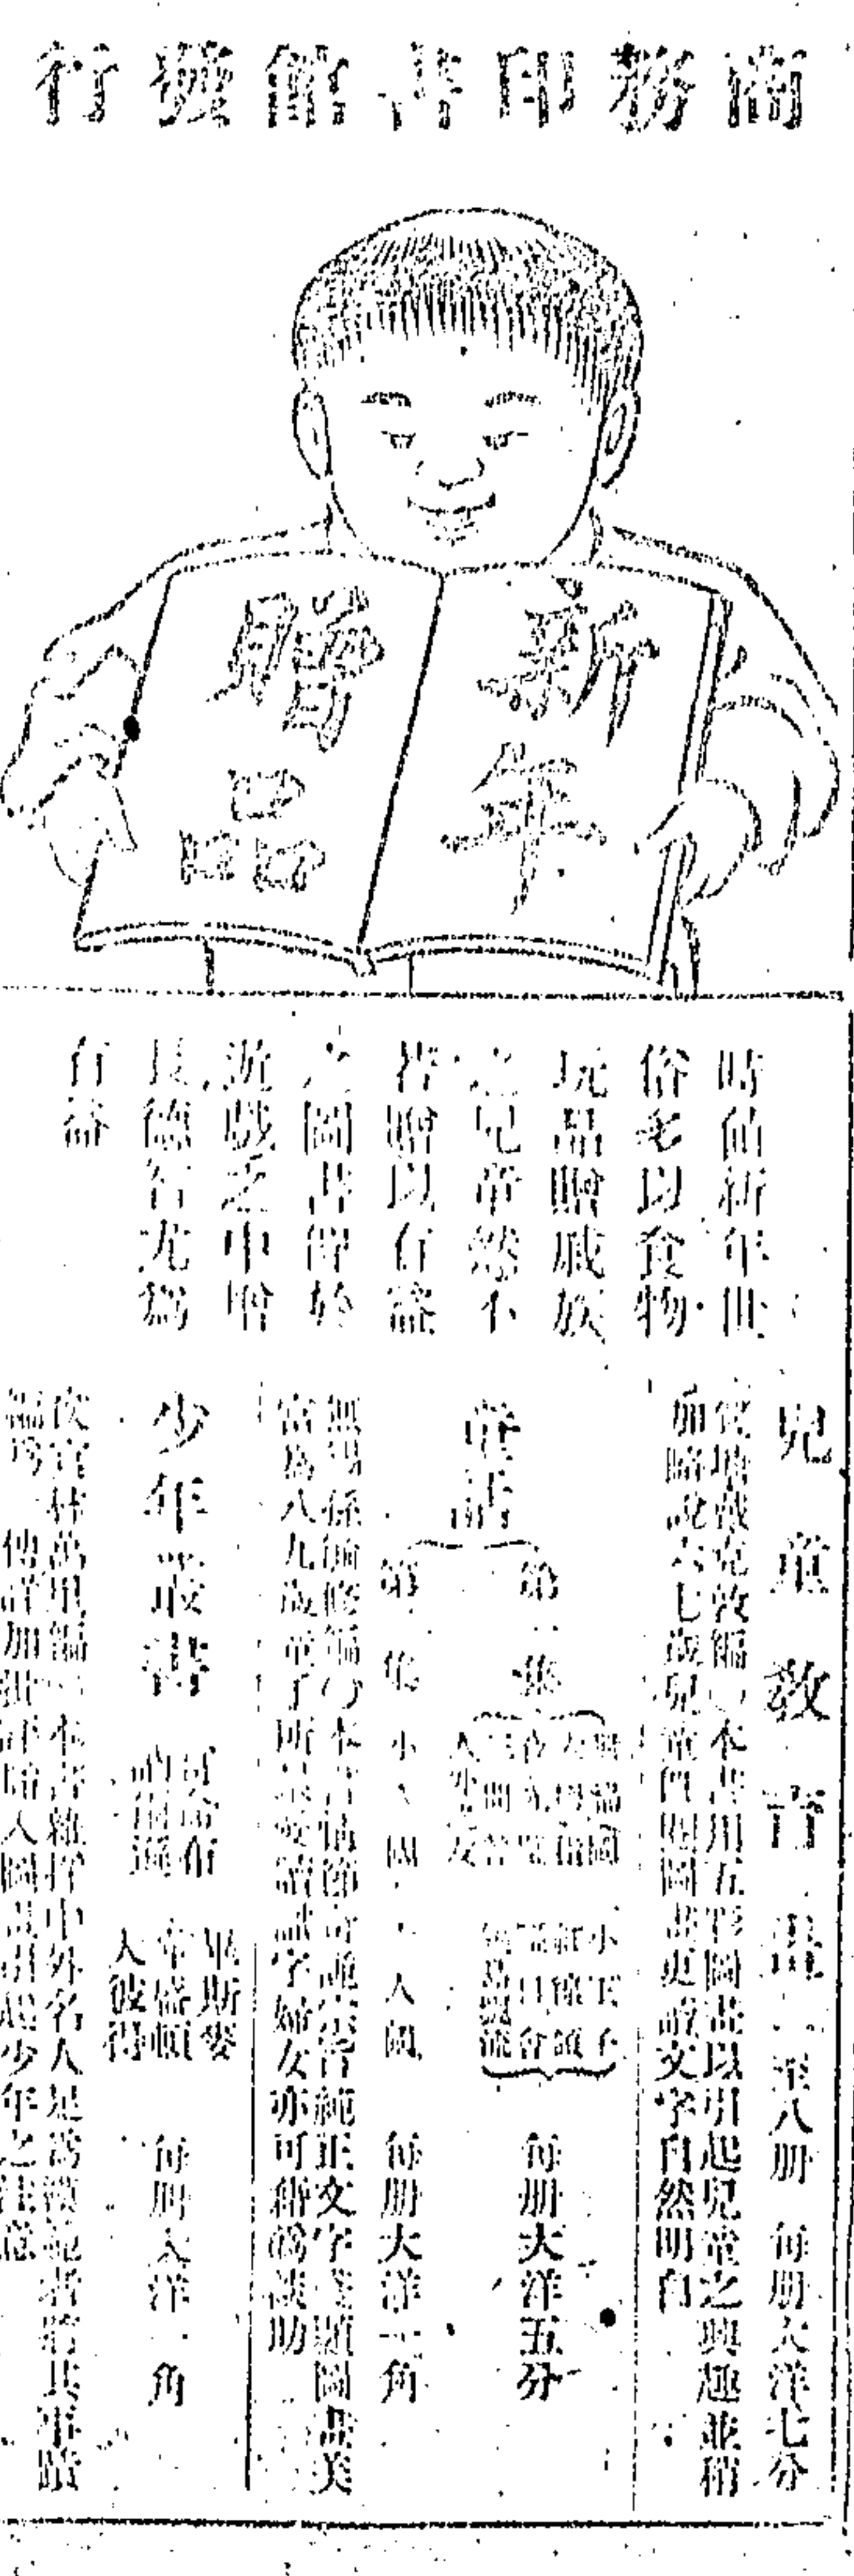 商務印書館發行
新年
贈品
時值新年世
俗多以食物
玩品贈戚族
之兒童然不
若贈以有益
之圖書俾於
遊戲之中增
長德行尤為
有益
兒童教育畫 一至八册 每册大洋七分
戴克敦編 本書用五彩圖畫以引起兒童之興趣並稍
加略說六七歲兒童閱圖畫更讀文字自然明白
童話
第一集
無貓國
大拇指
人外之友
小王子
每册大洋五分
第 集 小人國 大人國 每册大洋一角
無錫孫毓修編 本書情節奇詭宗旨純正文字淺顯圖畫美
富為八九歲童子所最愛讀識字婦女亦可藉為談助
少年叢書
哥侖布
納爾遜
畢斯麥
華盛頓
大彼得
每册大洋一角
林萬里編 本書雜採中外名人足為模範者將其事蹟
編為 傳詳加批評附入圖畫引起少年之注意